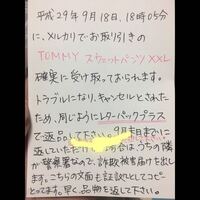 平成29年9月18日、18時05分
に、メルカリでお取り引きの
TOMMY スウェットパンツ XXL
確実に受け取っておられます。
トラブルになり、キャンセルとされた
ため、同じようにレターパックプラス
で返品して下さい。9月末日までに
返していただけ 場合は、うちの隣
が警察署なので、詐欺被害届けを出し
ます。こちらの文面も証拠としてコピー
とってます。早く品物を返して下さい。